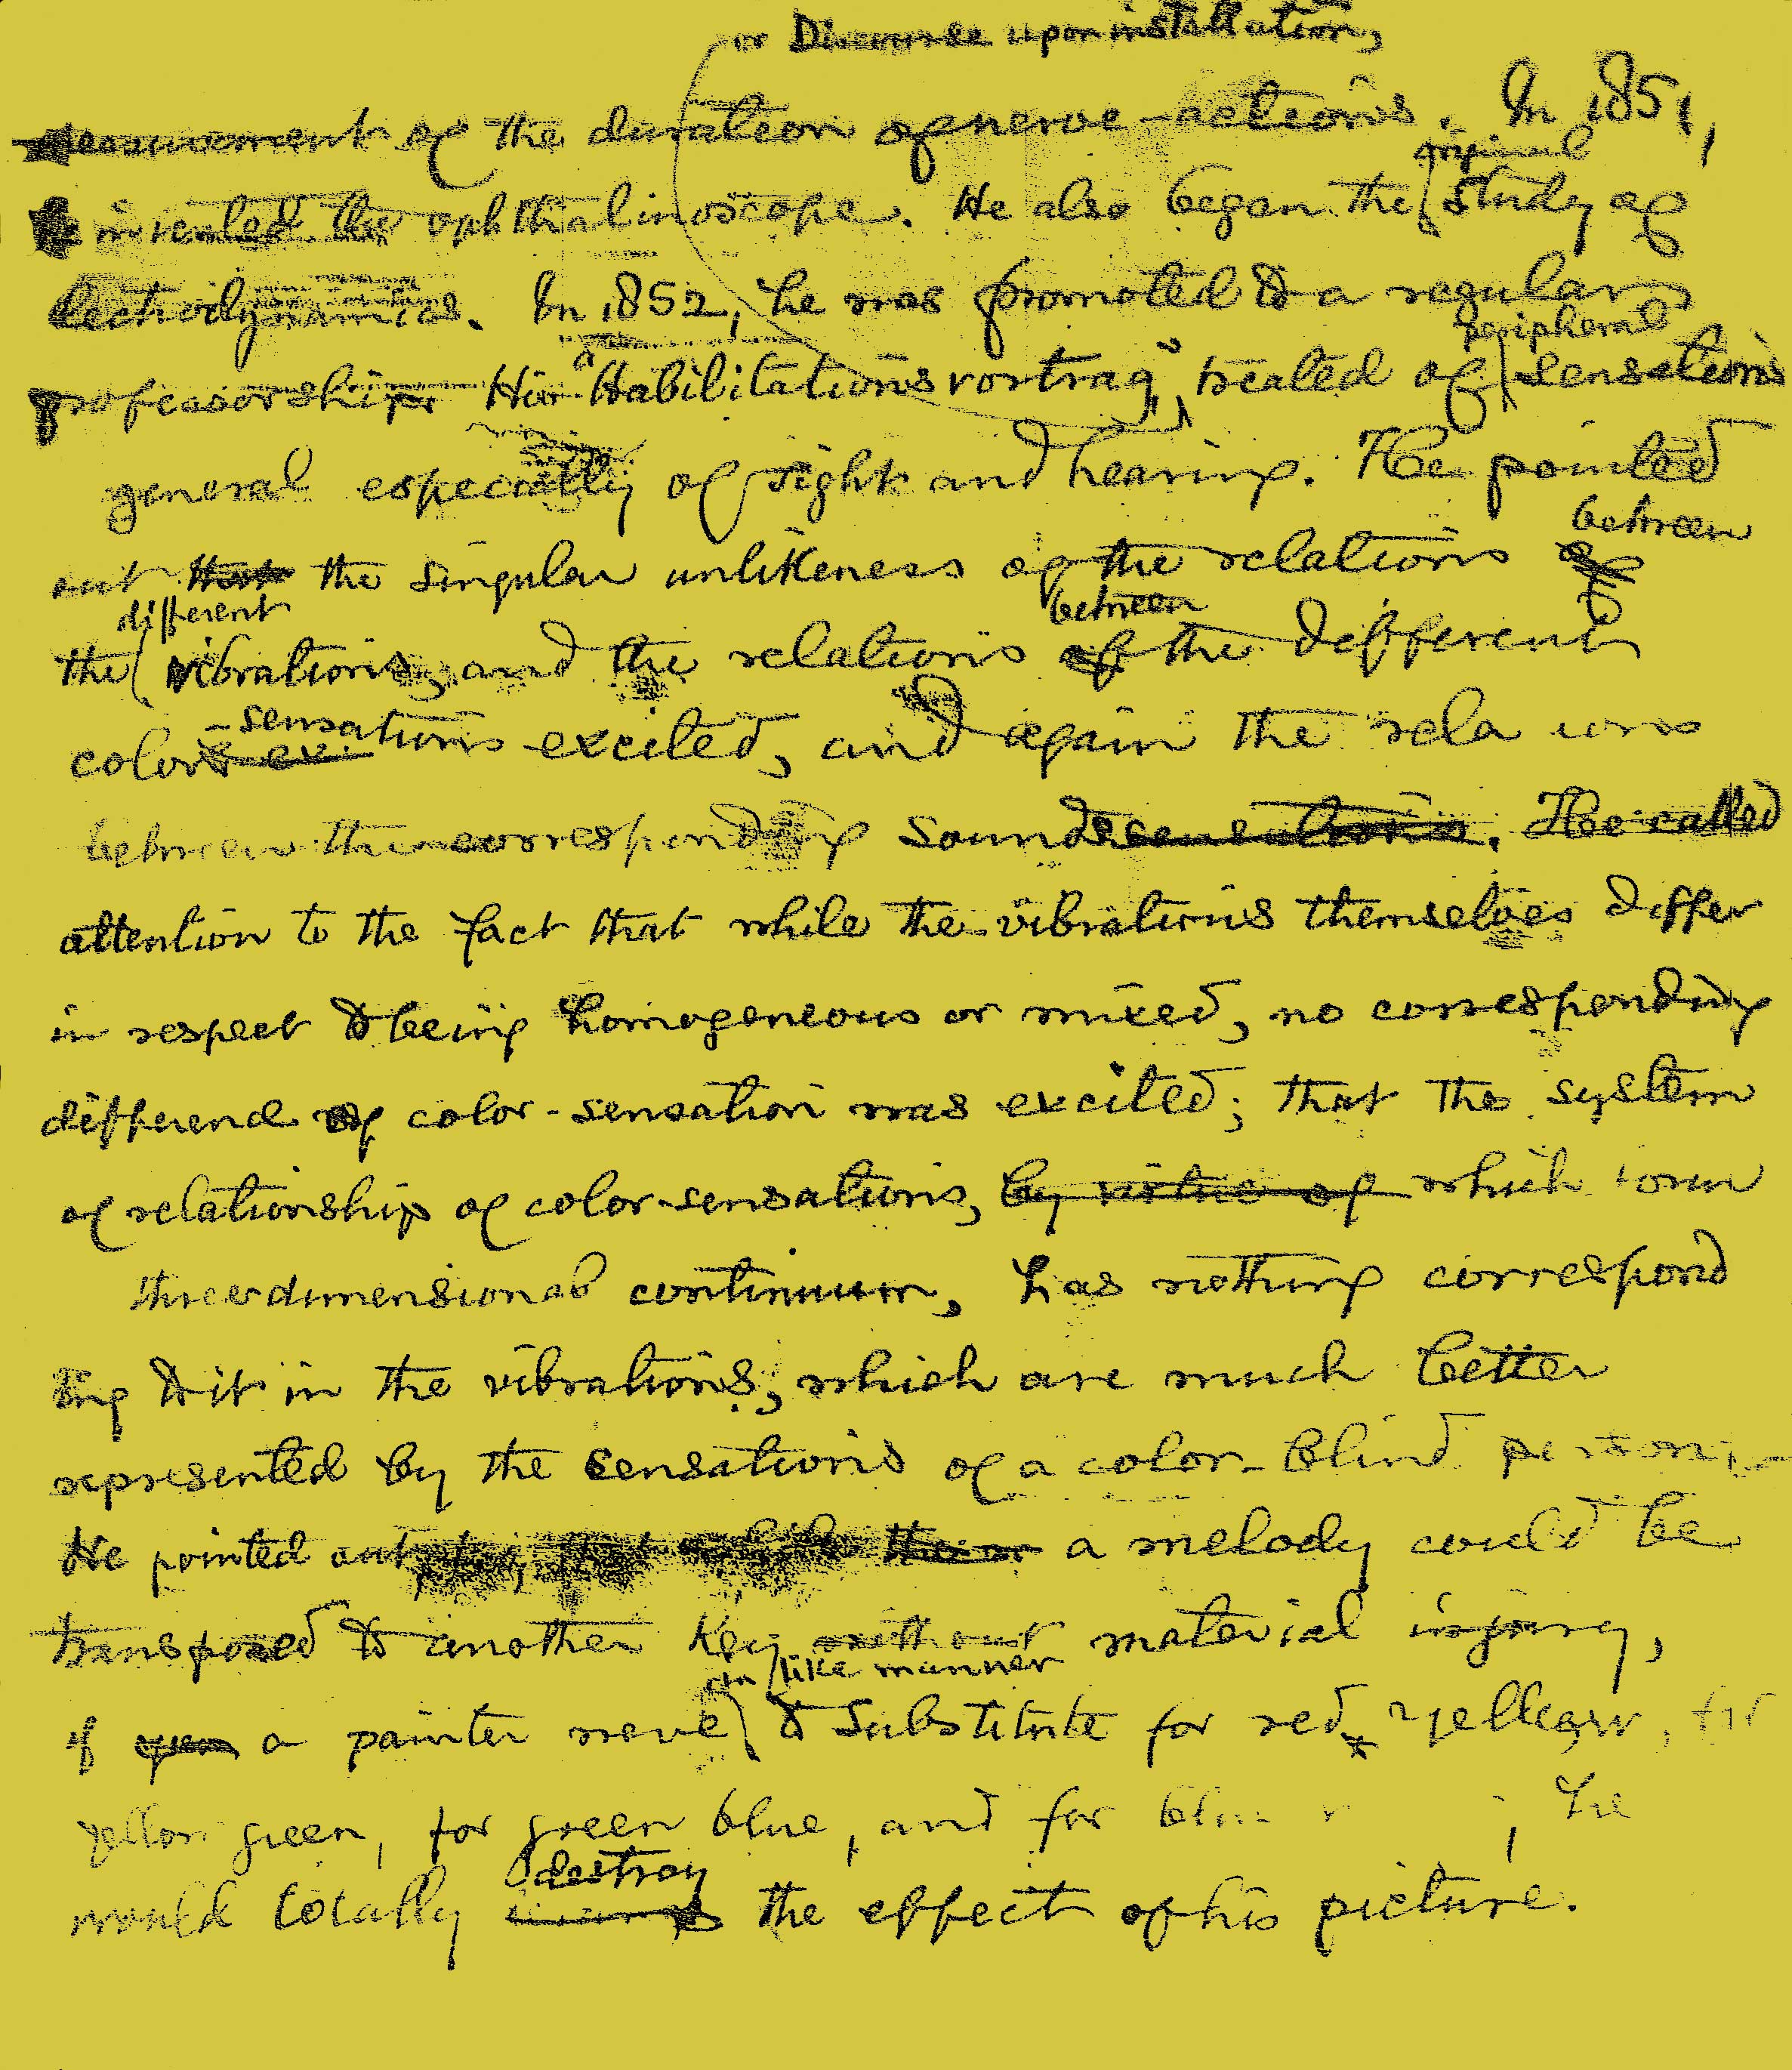 or Discourse upon installation,
measurement of the duration of nerve-actions. In 1851,
original
he invented the ophthalmoscope. He also began the study of
electrodynamics. In 1852, he was promoted to a regular
peripheral
professorship. His "Habilitationsvortrag", treated of sensations
general especially of sight and hearing. He pointed
between
out that the singular unlikeness of the relations of
different between
the vibrations, and the relations of the different
-sensations
colors ex excited, and again the relations
between the corresponding sounds sensations. He called
attention to the fact that while the vibrations themselves differ
in respect to being homogeneous or mixed, no corresponding
difference of color-sensation was excited; that the system
of relationship of color-sensations, by virtue of which form
three dimensional continuum, has nothing correspond
ing to it in the vibrations, which are much better
represented by the sensations of a color-blind person.
He pointed out that while a melody could be
transposed to another key without material injury,
in like manner
if a painter were to substitute for red yellow, for
yellow green, for green blue, and for blue ; he
destroy
would totally the effect of his picture.